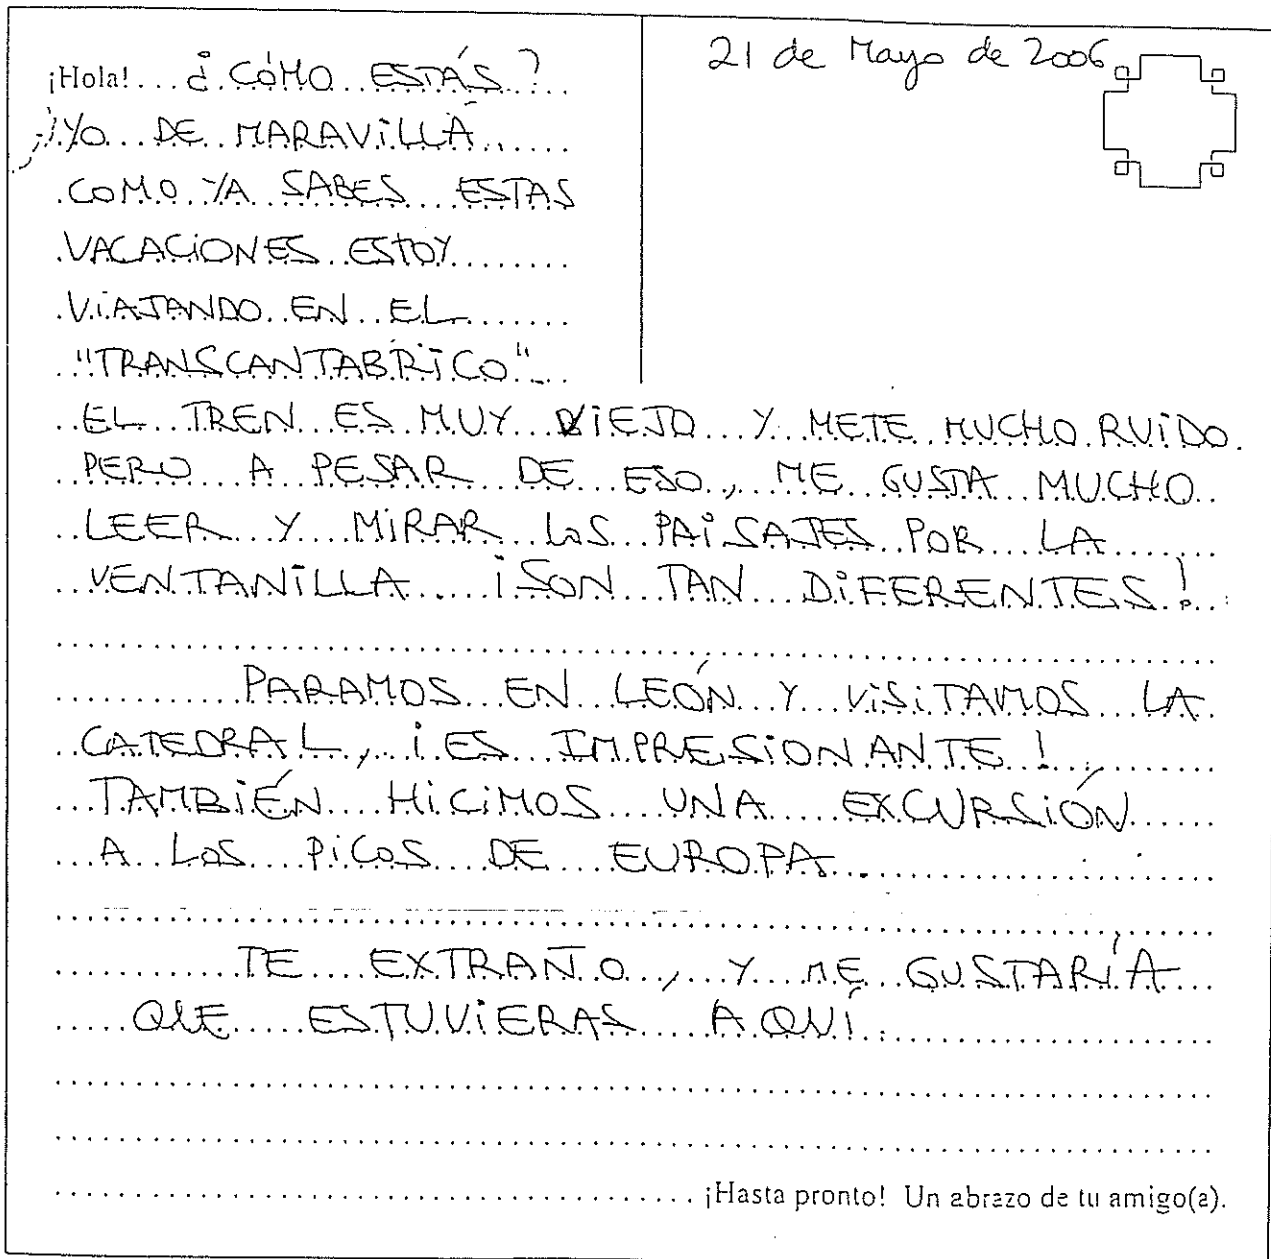 21 de Mayo de 2006
¡Hola! ¿CÓMO ESTÁS?
¡YO DE MARAVILLA
COMO YA SABES ESTAS
VACACIONES ESTOY
VIAJANDO EN EL
"TRANSCANTABRICO"
EL TREN ES MUY VIEJO Y METE MUCHO RUIDO.
PERO A PESAR DE ESO, ME GUSTA MUCHO
LEER Y MIRAR LOS PAISAJES POR LA
VENTANILLA ¡SON TAN DIFERENTES!
PARAMOS EN LEÓN Y VISITAMOS LA
CATEDRAL, ¡ES IMPRESIONANTE!
TAMBIÉN HICIMOS UNA EXCURSIÓN
A LOS PICOS DE EUROPA.
TE EXTRAÑO, Y ME GUSTARÍA
QUE ESTUVIERAS AQUÍ.
¡Hasta pronto! Un abrazo de tu amigo(a).